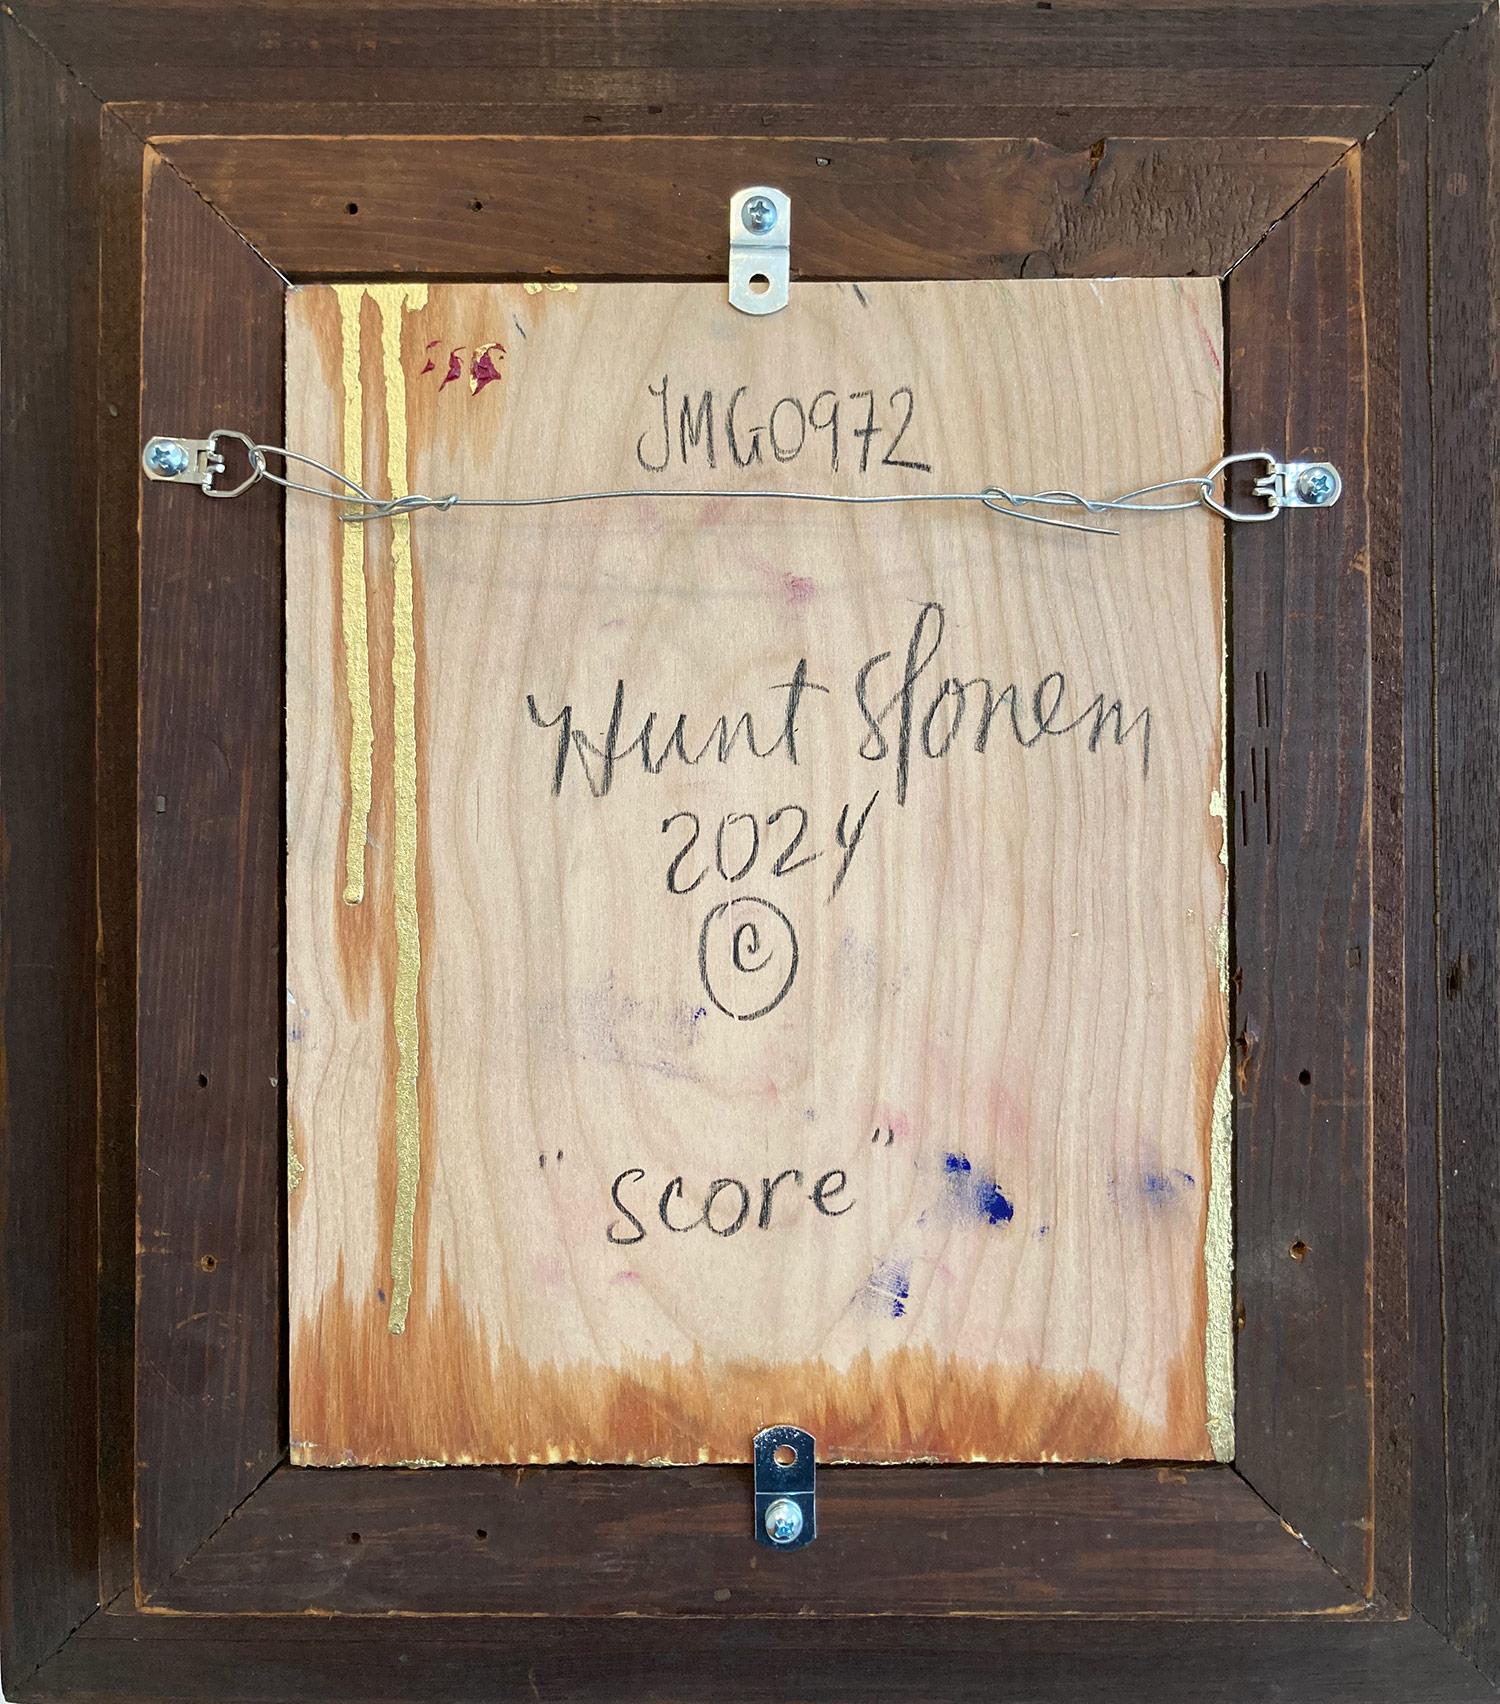 JMG0972
Hunt Slonem
2024
©
"score"